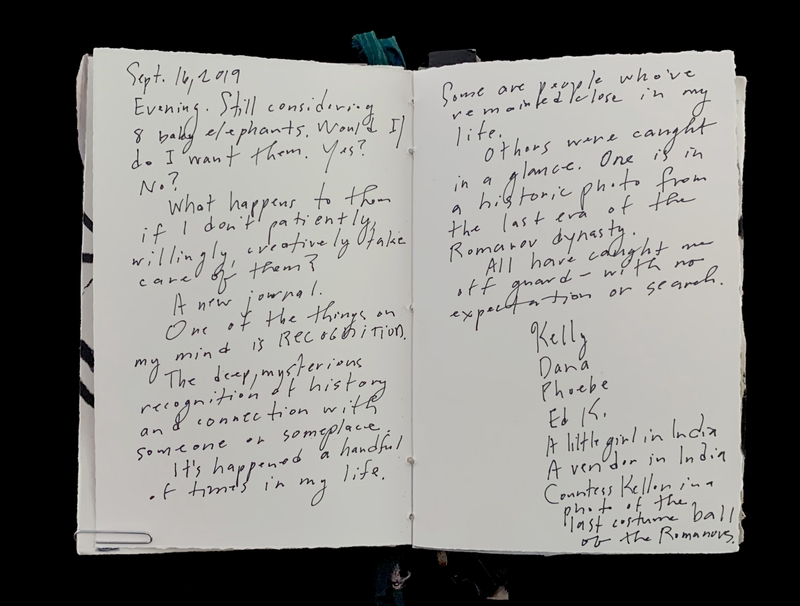 Sept. 16, 2019
Evening. Still considering
8 baby elephants. Would I/
do I want them. Yes?
No?
What happens to them
if I don't patiently,
willingly, creatively take
care of them?
A new journal.
One of the things on
my mind is RECOGNITION.
The deep, mysterious
recognition of history
and connection with
someone or someplace.
It's happened a handful
of times in my life.
Some are people who've
remained close in my
life.
Others were caught
in a glance. One is in
a historic photo from
the last era of the
Romanov dynasty.
All have caught me
off guard – with no
expectation or search.
Kelly
Dana
Phoebe
Ed K.
A little girl in India
A vendor in India
Countess Keller in a
photo of the
last costume ball
of the Romanovs.